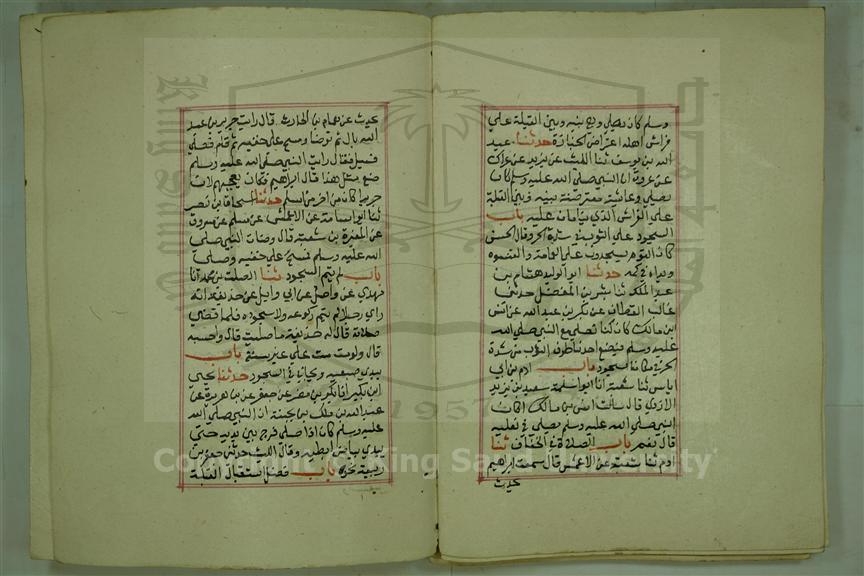 وسلم كان يصلي وهي بينه وبين القبلة علي
فراش اهله اعتراض الجنازة حدثنا عبد
الله بن يوسف ثنا الليث عن يزيد عن عراك
عن عروة ان النبي صلي الله عليه وسلم كان
يصلي وعائشة معترضة بينه وبين القبلة
علي الفراش الذي ينامان عليه باب
السجود علي الثوب في شدة الحر وقال الحسن
كان القوم يسجدون علي العمامة والقلنسوة
ويداه في كمه حدثنا ابو الوليد هشام بن
عبد الملك ثنا بشر بن المفضل حدثني
غالب القطان عن بكر بن عبد الله عن انس
ابن مالك كان كنا نصلي مع النبي صلي الله
عليه وسلم فيضع احدنا طرف الثوب من شدة
الحر في مكان السجود باب ادم بن ابي
اياس ثنا شعبة انا ابو مسلمة سعيد بن يزيد
الازدي قال سالت انس بن مالك اكان
النبي صلي الله عليه وسلم يصلي في نعليه
قال نعم باب الصلاة في الخفاف ثنا
ادم ثنا شعبة عن الاعمش قال سمعت ابراهيم
يحدث
يحدث عن همام بن الحارث قال رايت جرير بن عبد
الله بال ثم توضا ومسح علي خفيه ثم قام فصلي
فسيل فقال رايت النبي صلي الله عليه وسلم
صنع مثل هذا قال ابراهيم فكان يعجبهم لان
جريرا كان من اخر من اسلم حدثنا اسحاق بن نصر
ثنا ابو اسامة عن الاعمش عن مسلم عن مسروق
عن المغيرة بن شعبة قال وضات النبي صلي
الله عليه وسلم فمسح علي خفيه وصلي
باب لم يتم السجود ثنا الصلت بن محمد انا
مهدي عن واصل عن ابي وايل عن حذيفة انه
راي رجلا لم يتم ركوعه ولا سجوده فلما قضي
صلاته قال له حذيفة ما صليت قال واحسبه
قال ولو مت مت علي غير سنة باب
يبدي ضبعيه ويجافي في السجود حدثنا يحي
ابن بكير انا بكر بن مضر عن جعفر عن بن هرمز عن
عبد الله بن ملك بن بحينة ان النبي صلي الله
عليه وسلم كان اذا صلي فرج بين يديه حتي
يبدي بياض ابطيه وقال الليث حدثني جعفر بن
ربيعة نحوه باب فضل استقبال القبلة